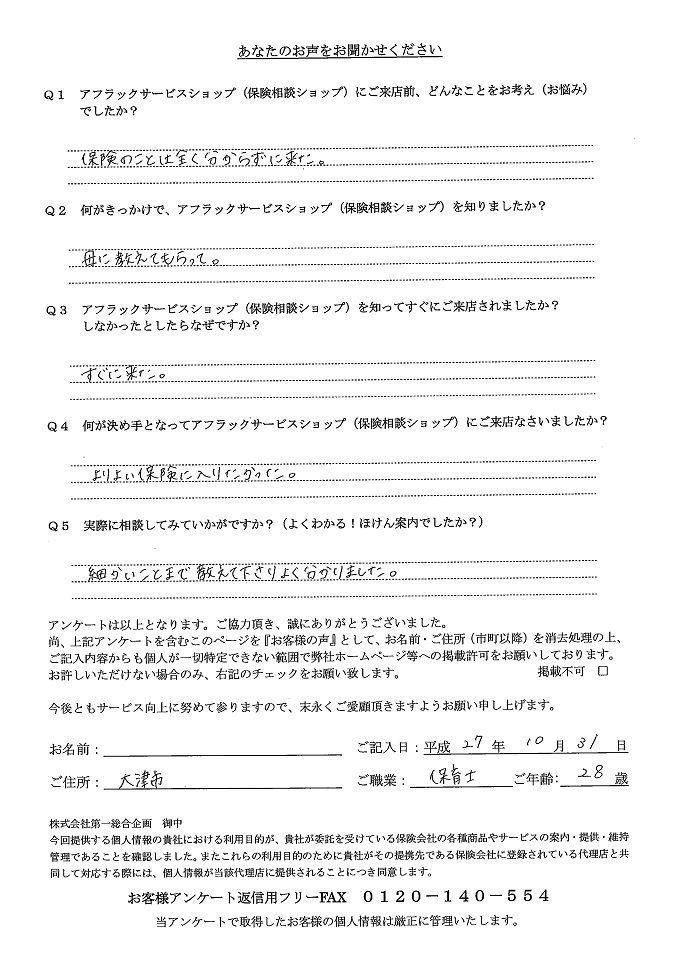 あなたのお声をお聞かせください
Q1 アフラックサービスショップ（保険相談ショップ）にご来店前、どんなことをお考え（お悩み）
でしたか？
保険のことは全く分からずに来た。
Q2 何がきっかけで、アフラックサービスショップ（保険相談ショップ）を知りましたか？
母に教えてもらって。
Q3 アフラックサービスショップ（保険相談ショップ）を知ってすぐにご来店されましたか？
しなかったとしたらなぜですか？
すぐに来た。
Q4 何が決め手となってアフラックサービスショップ（保険相談ショップ）にご来店なさいましたか？
よりよい保険に入りたかった。
Q5 実際に相談してみていかがですか？（よくわかる！ほけん案内でしたか？）
細かいことまで教えて下さりよく分かりました。
アンケートは以上となります。ご協力頂き、誠にありがとうございました。
尚、上記アンケートを含むこのページを『お客様の声』として、お名前・ご住所（市町以降）を消去処理の上、
ご記入内容からも個人が一切特定できない範囲で弊社ホームページ等への掲載許可をお願いしております。
お許しいただけない場合のみ、右記のチェックをお願い致します。 掲載不可 □
今後ともサービス向上に努めて参りますので、末永くご愛顧頂きますようお願い申し上げます。
お名前： ご記入日：平成 27 年 10 月 31 日
ご住所： 大津市 ご職業： 保育士 ご年齢： 28 歳
株式会社第一総合企画 御中
今回提供する個人情報の貴社における利用目的が、貴社が委託を受けている保険会社の各種商品やサービスの案内・提供・維持
管理であることを確認しました。またこれらの利用目的のために貴社がその提携先である保険会社に登録されている代理店と共
同して対応する際には、個人情報が当該代理店に提供されることにつき同意します。
お客様アンケート返信用フリーFAX 0120－140－554
当アンケートで取得したお客様の個人情報は厳正に管理いたします。